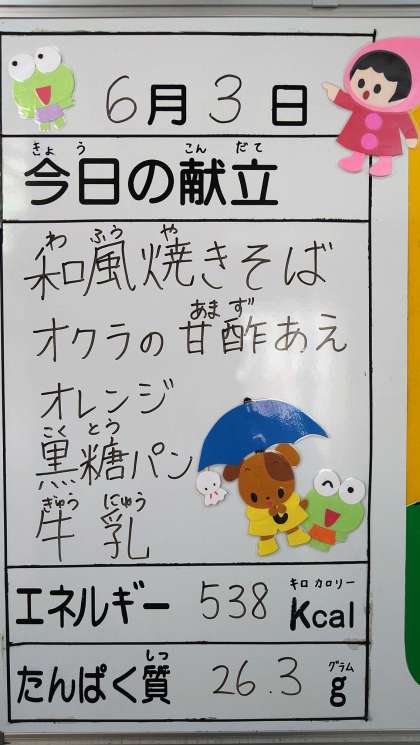 6月3日
きょう こん だて
今日の献立
わ ふう や
和風焼きそば
あま ず
オクラの甘酢あえ
オレンジ
こく とう
黒糖パン
ぎゅう にゅう
牛乳
キロ カロリー
エネルギー 538 Kcal
しつ グラム
たんぱく質 26.3 g